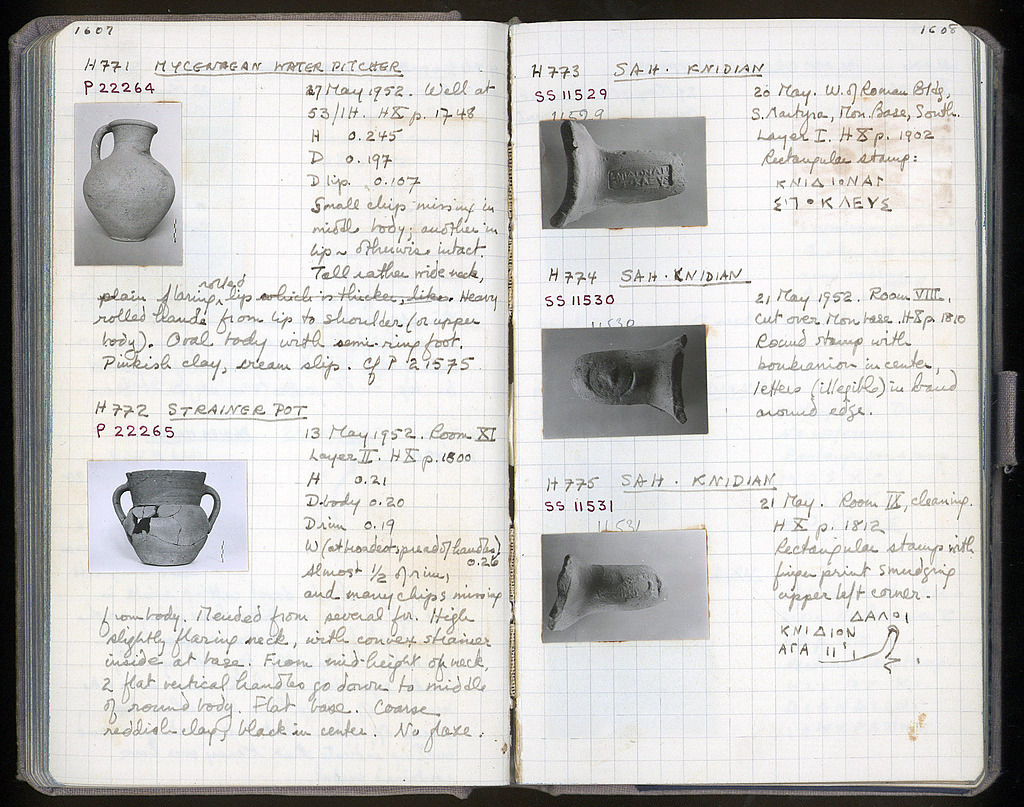 1607
H771 MYCENAEAN WATER PITCHER
P 22264
27 May 1952. Well at
53/1H. HX p. 1748
H 0.245
D 0.197
D lip 0.107
Small chips missing in
middle body; another in
lip – otherwise intact.
Tall rather wide neck,
rolled
plain flaring lip which is thicker, like. Heavy
rolled handle from lip to shoulder (or upper
body). Oval body with semi-ring foot.
Pinkish clay, cream slip. Cf P 21575
H772 STRAINER POT
P 22265
13 May 1952. Room XI
Layer II. HX p. 1800
H 0.21
D. body 0.20
D rim 0.19
W (at broadest spread of handles)
0.26
Almost 1/2 of rim,
and many chips missing
from body. Mended from several fr. High
slightly flaring neck, with convex strainer
inside at base. From mid-height of neck,
2 flat vertical handles go down to middle
of round body. Flat base. Coarse
reddish clay, black in center. No glaze.
1608
H773 SAH. KNIDIAN
SS 11529
11529
20 May. W. of Roman Bldg,
S. Martyra, Mon. Base, South.
Layer I. HX p. 1902
Rectangular stamp:
ΚΝΙΔΙΟΝΑΓ
ΣΙΠΟΚΛΕΥΣ
H774 SAH. KNIDIAN
SS 11530
11530
21 May 1952. Room VIII,
cut over Mon base. HX p. 1810
Round stamp with
boukranion in center,
letters (illegible) in band
around edge.
H775 SAH. KNIDIAN
SS 11531
11531
21 May. Room IX, cleaning.
HX p. 1812
Rectangular stamp with
finger print smudging
upper left corner.
ΔΑΛΟΙ
ΚΝΙΔΙΟΝ
ΑΓΑ